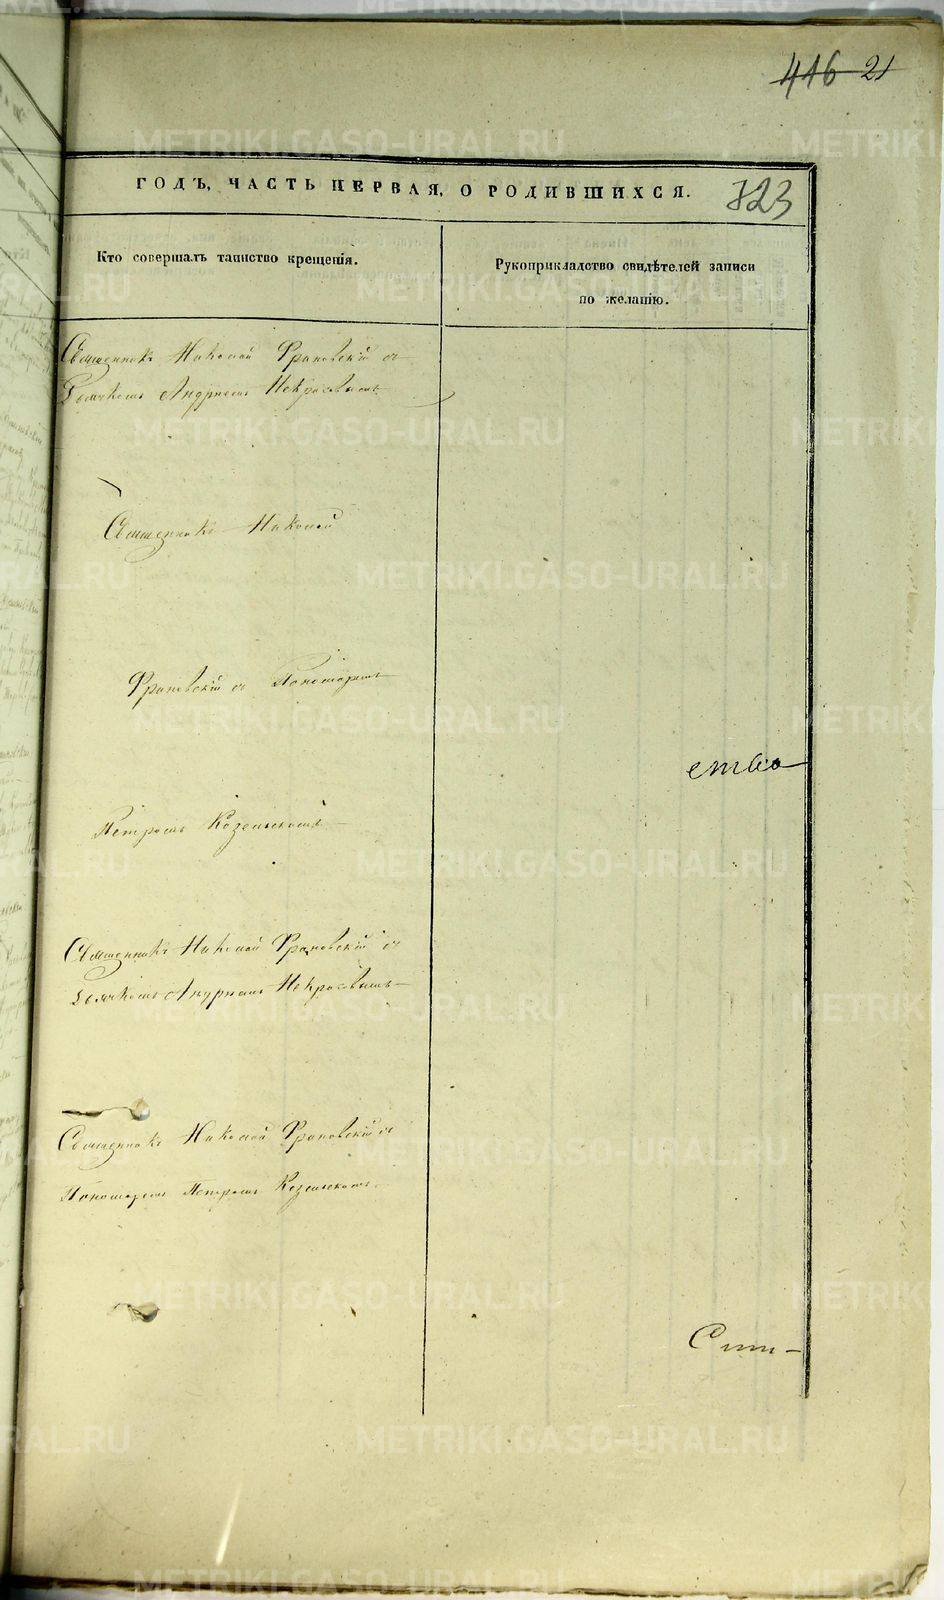 416 21
ГОДЪ, ЧАСТЬ ПЕРВАЯ, О РОДИВШИХСЯ.
323
Кто совершалъ таинство крещенія.
Рукоприкладство свидѣтелей записи
по желанію.
Священникъ Николай Франовскій съ
Дьячкомъ Андреемъ Некрасовымъ
Священникъ Николай
Франовскій съ Пономаремъ
ство
Петромъ Козельскомъ
Священникъ Николай Франовскій съ
Дьячкомъ Андреемъ Некрасовымъ
Священникъ Николай Франовскій съ
Пономаремъ Петромъ Козельскомъ
METRIKI.GASO-URAL.RU